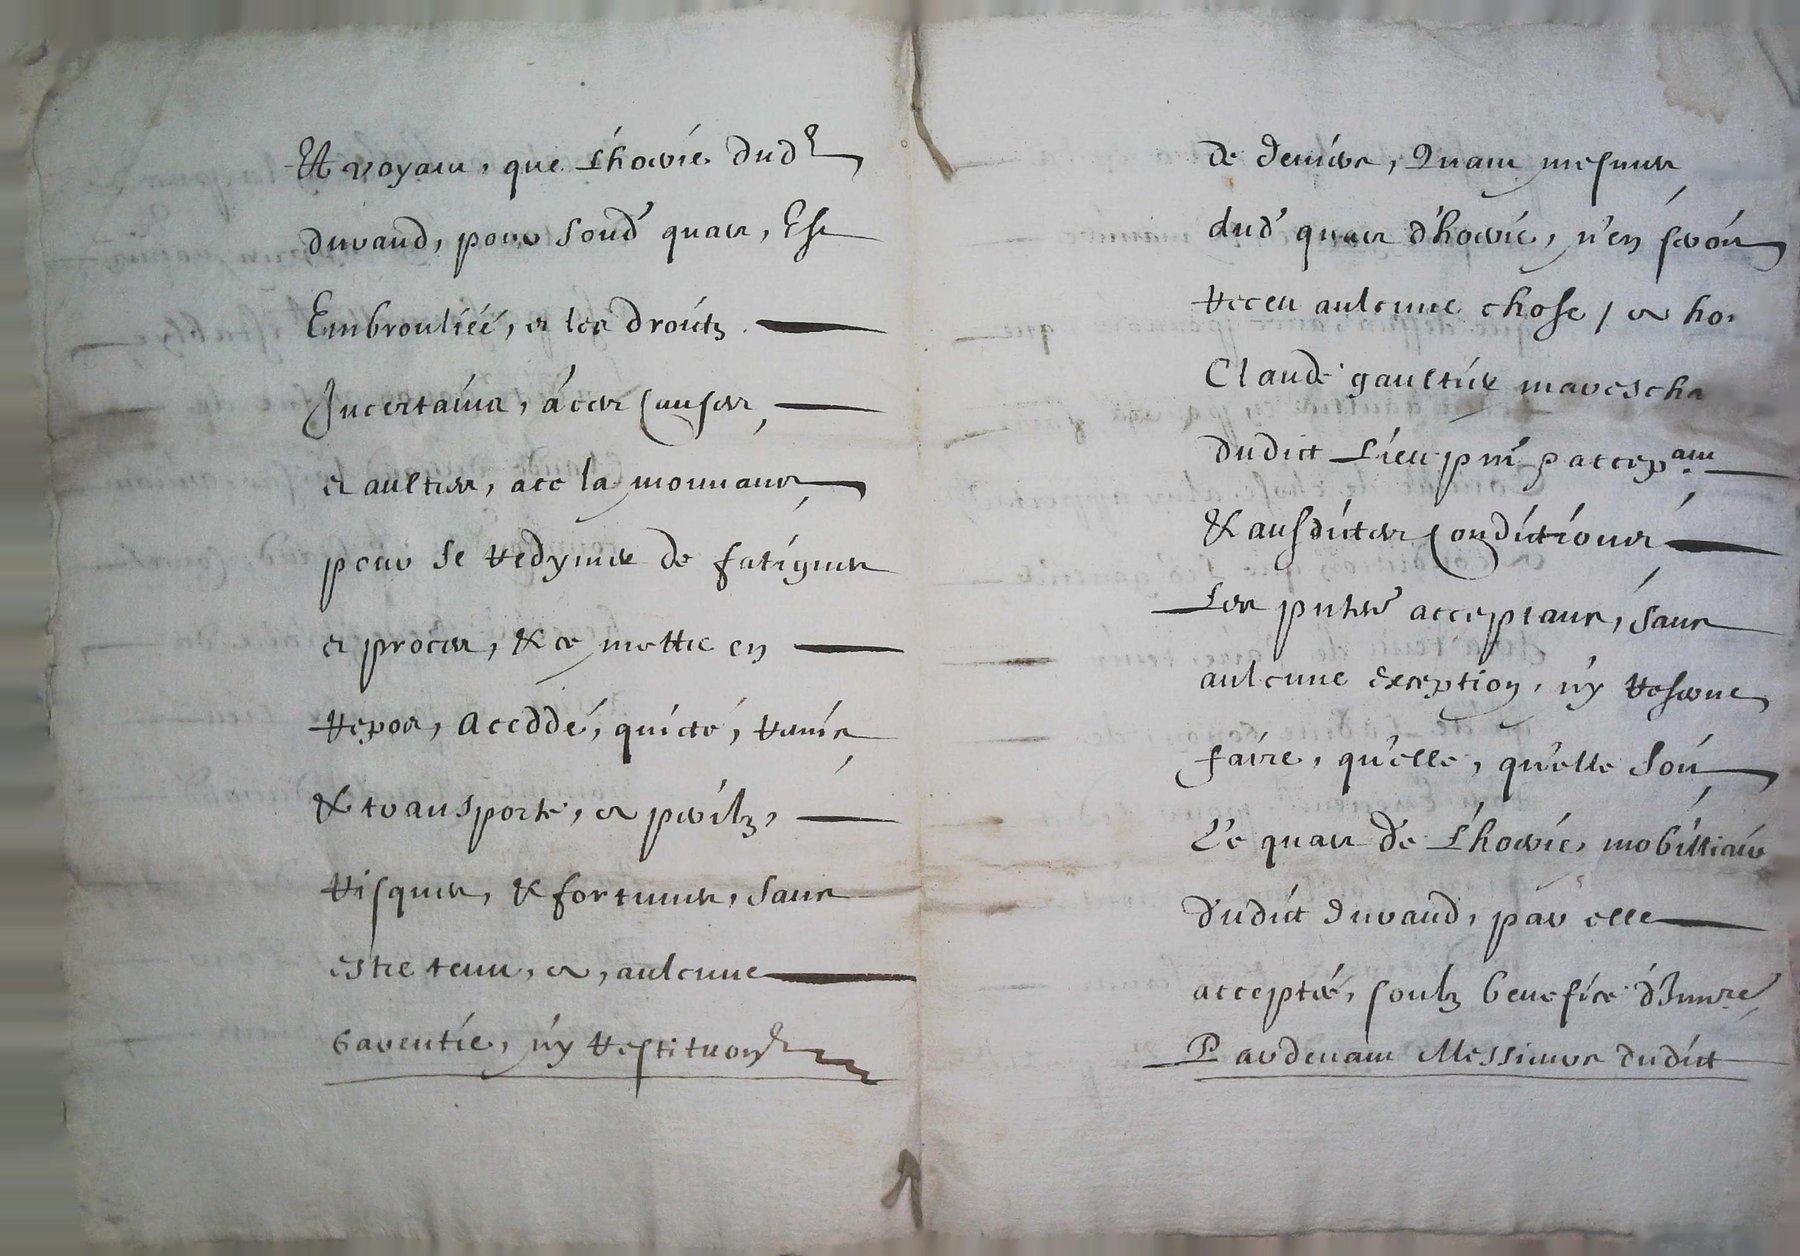 Et voyant, que L'hoirie dud^t
durand, pour sond' quart, Est
Embrouliéé, et les droitz
Incertains, à ces Causes,
et aultres, acc la mouvant
pour se redymer de fatigues
et proces, & ce mettre en
repos, A ceddé, quicté, remis
& transporté, et perilz,
risques, & fortunes, sans
estre tenu, et, aulcune
Garentie, ny restituon
de deniers, quant mesmes
dud' quart d'hoirie, n'en seroit
receu aulcune chose / et ho.
Claude gaultier marescha
dudict Lieu pnt p accep^ant
& ausdictes Condictions
Les pntes acceptant, sans
aulcune exception, ny reserve
faire, qu'elle, qu'elle soit
Le quart de L'hoirie, mobiliaire
dudict durand, par elle
acceptéé, soubz benefice d'Invre
Pardevant Messieurs dudict